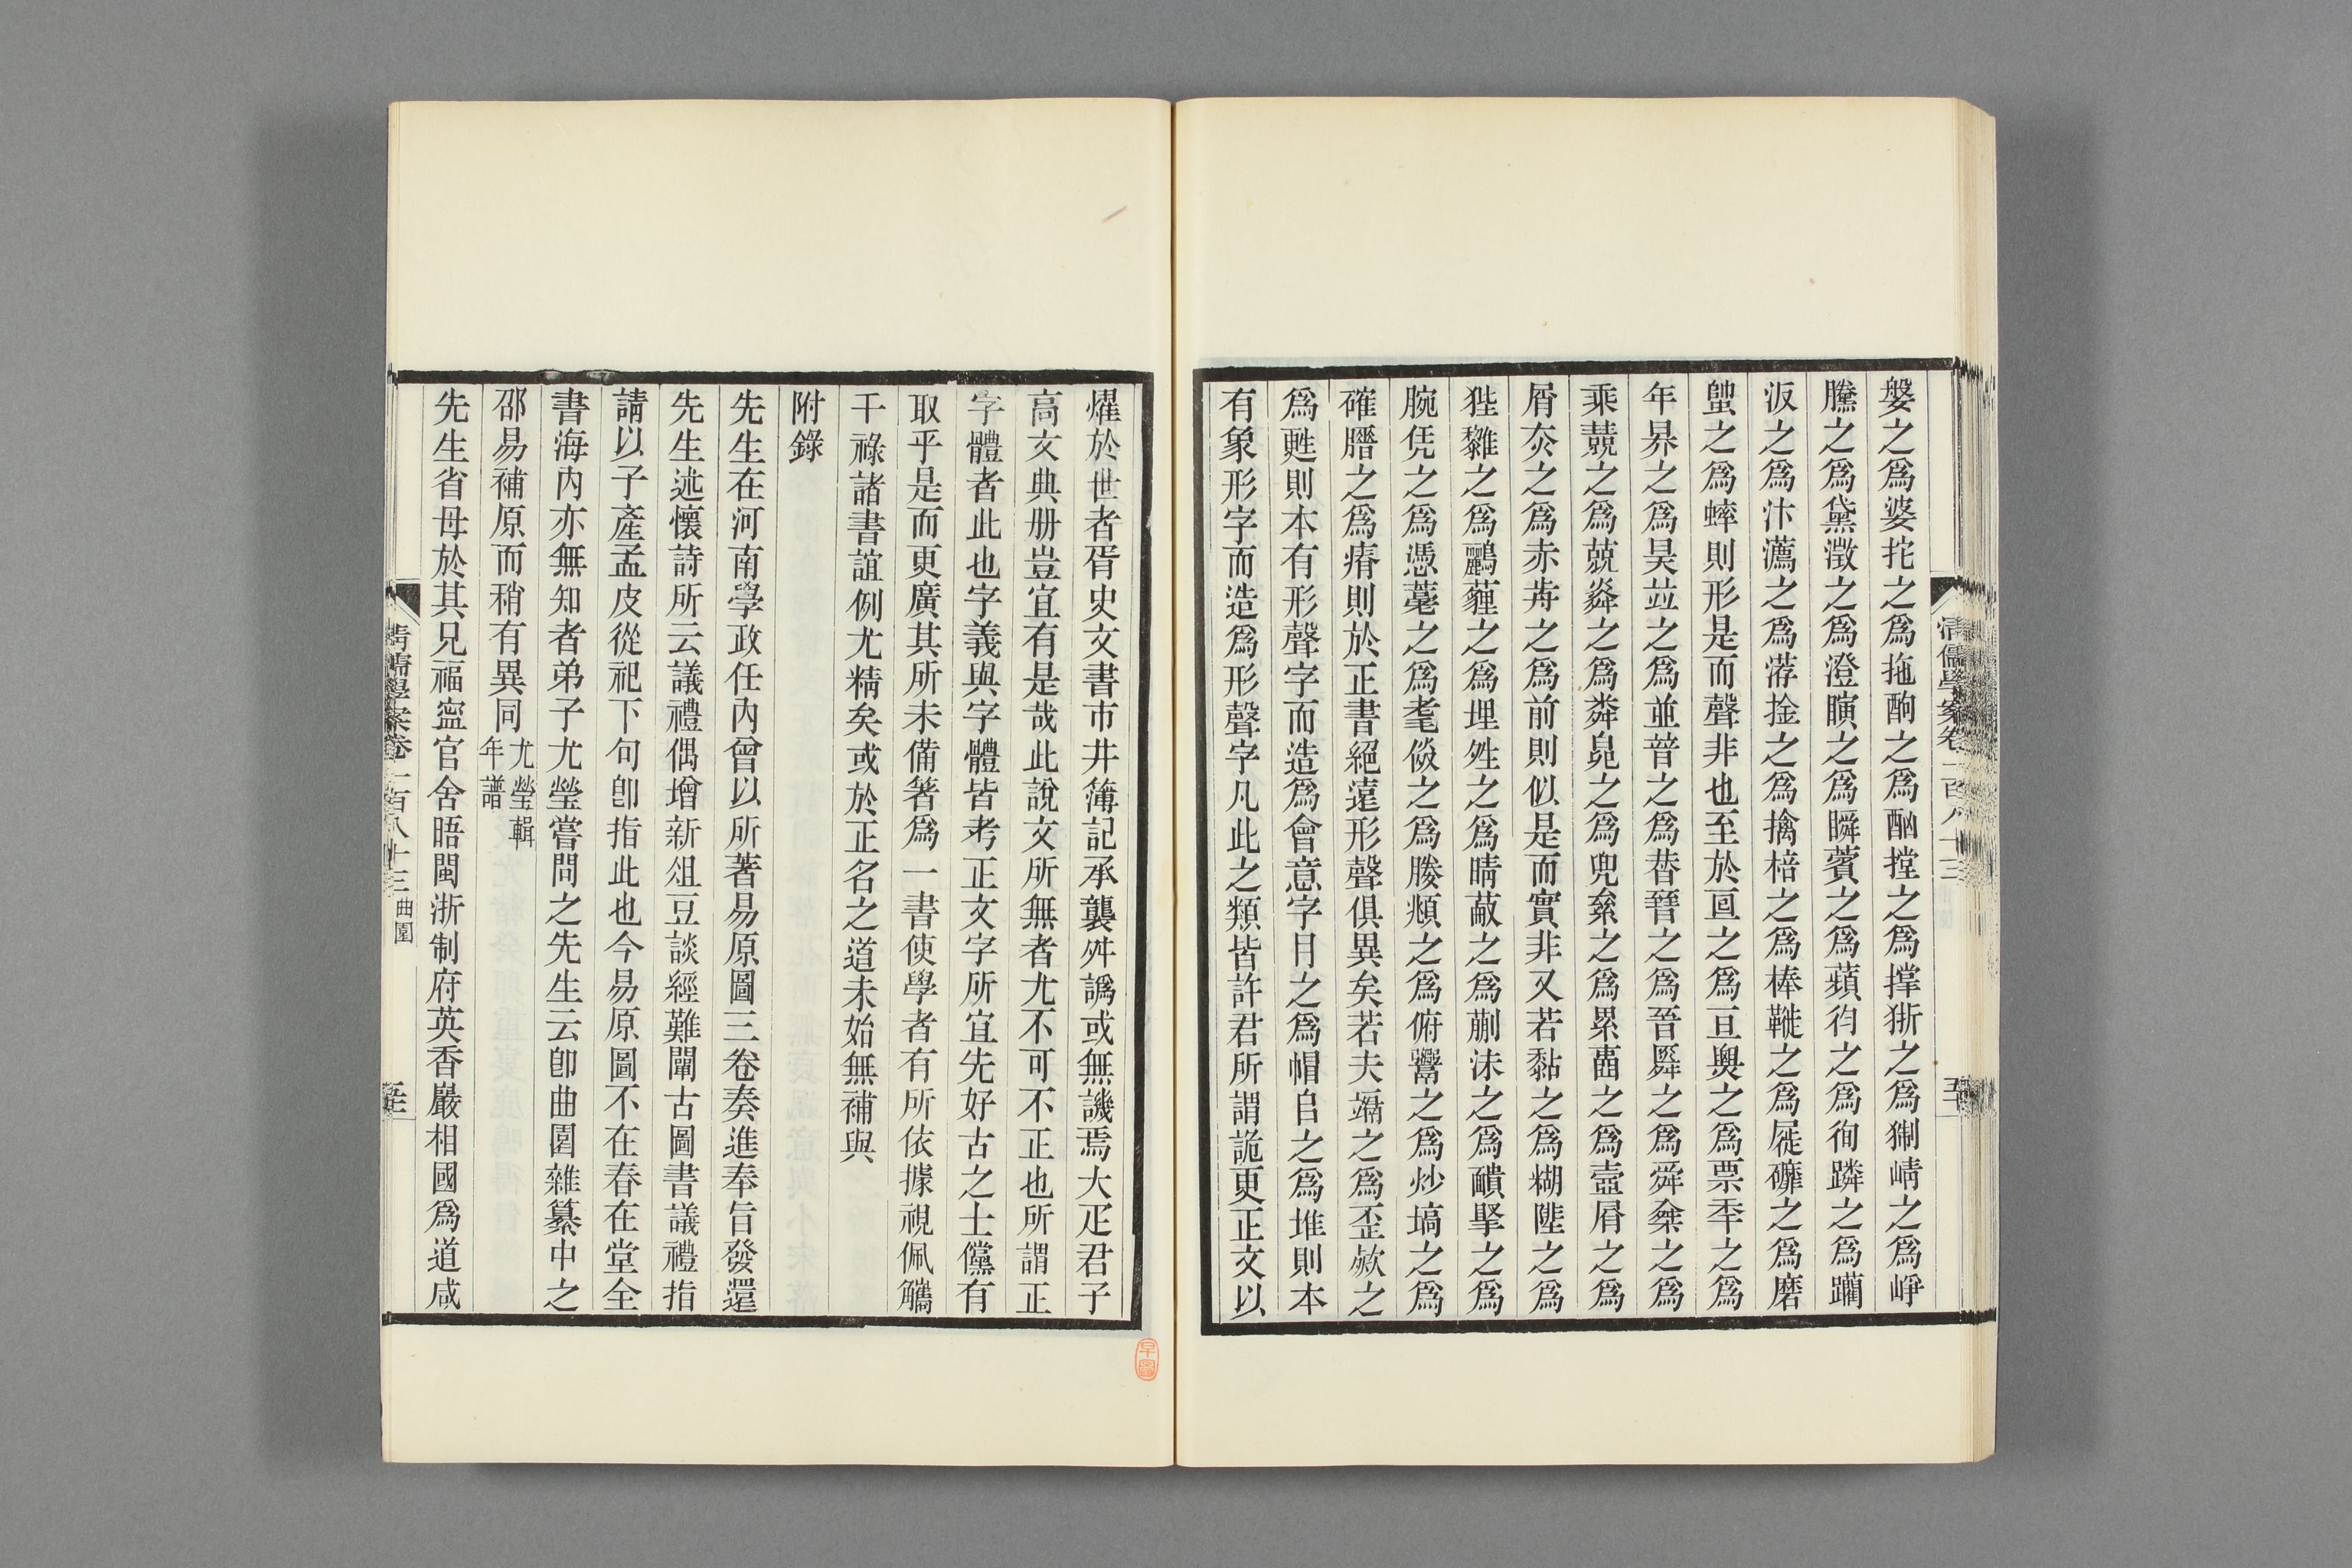 媻之爲婆拕之爲拖酌之爲酬摚之爲撐狾之爲猘崝之爲崢
黱之爲黛澂之爲澄瞚之爲瞬薲之爲蘋袀之爲徇蹸之爲躪
汳之爲汴瀳之爲洊捦之爲擒棓之爲棒鞾之爲屣礳之爲磨
蟁之爲蟀則形是而聲非也至於𠄢之爲亘㶾之爲票秊之爲
年昦之爲昊竝之爲並暜之爲替㬜之爲晉䑞之爲舜桀之爲
乘兢之爲兢粦之爲粦皃之爲兜絫之爲累壺之爲壷屑之爲
屑灻之爲赤歬之爲前則似是而實非又若黏之爲糊陞之爲
狴雞之爲鸝薶之爲埋夝之爲晴蔽之爲蒯沬之爲靧掔之爲
腕凭之爲憑薹之爲耄倓之爲媵頫之爲俯鬻之爲炒塙之爲
確膌之爲瘠則於正書絕遠形聲俱異矣若夫竵之爲歪歘之
爲甦則本有形聲字而造爲會意字冃之爲帽𠂤之爲堆則本
有象形字而造爲形聲字凡此之類皆許君所謂詭更正文以
清儒學案卷一百八十三
五十
燿於世者胥史文書市井簿記承襲舛譌或無譏焉大疋君子
高文典册豈宜有是哉此說文所無者尤不可不正也所謂正
字體者此也字義與字體皆考正文字所宜先好古之士儻有
取乎是而更廣其所未備箸爲一書使學者有所依據視佩觿
干祿諸書誼例尤精矣或於正名之道未始無補與
附錄
先生在河南學政任內曾以所著易原圖三卷奏進奉旨發還
先生述懷詩所云議禮偶增新俎豆談經難闡古圖書議禮指
請以子產孟皮從祀下句卽指此也今易原圖不在春在堂全
書海內亦無知者弟子尤瑩嘗問之先生云卽曲園雜纂中之
邵易補原而稍有異同尤瑩輯年譜
先生省母於其兄福寍官舍晤閩浙制府英香巖相國爲道咸
清儒學案卷一百八十三 曲園